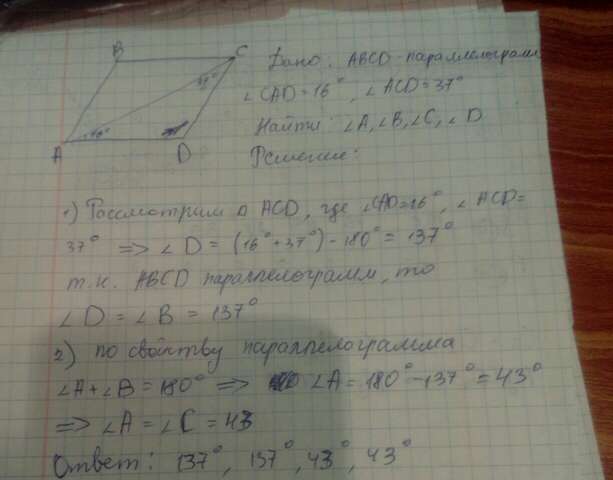 B
C
37°
A
16°
D
Дано: ABCD - параллелограмм
∠CAD=16°, ∠ACD=37°
Найти: ∠A, ∠B, ∠C, ∠D
Решение:
1) Рассмотрим Δ ACD, где ∠CAD=16°, ∠ACD=
37° => ∠D = (16°+37°)-180° = 137°
т.к. ABCD параллелограмм, то
∠D = ∠B = 137°
2) по свойству параллелограмма
∠A+∠B=180° => ∠A=180°-137°=43°
=> ∠A = ∠C = 43
Ответ: 137°, 137°, 43°, 43°